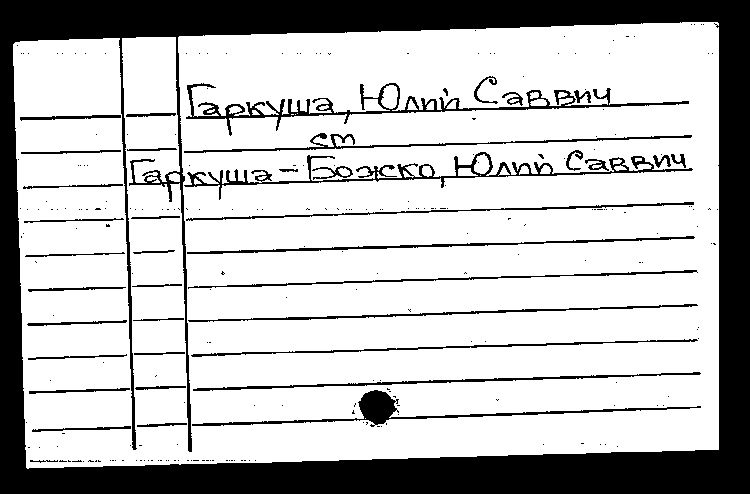 Гаркуша, Юлий Саввич
см
Гаркуша - Божко, Юлий Саввич